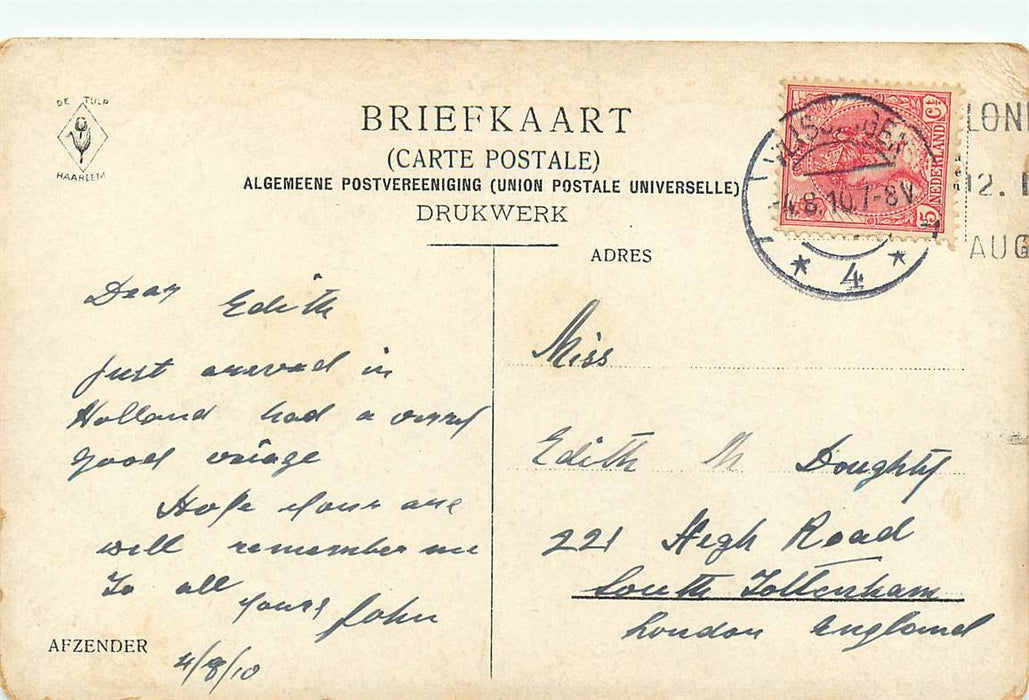 DE TULP
HAARLEM
BRIEFKAART
(CARTE POSTALE)
ALGEMEENE POSTVEREENIGING (UNION POSTALE UNIVERSELLE)
DRUKWERK
ADRES
5 NEDERLAND Ct
4.8.10.7-8V
4
LON
12.
AUG
Dear Edith
Just areved in
Holland had a verry
good voiage
Hope your are
well remember me
To all
yours John
AFZENDER
4/8/10
Miss
Edith M Doughty
221 High Road
South Tottenham
London England